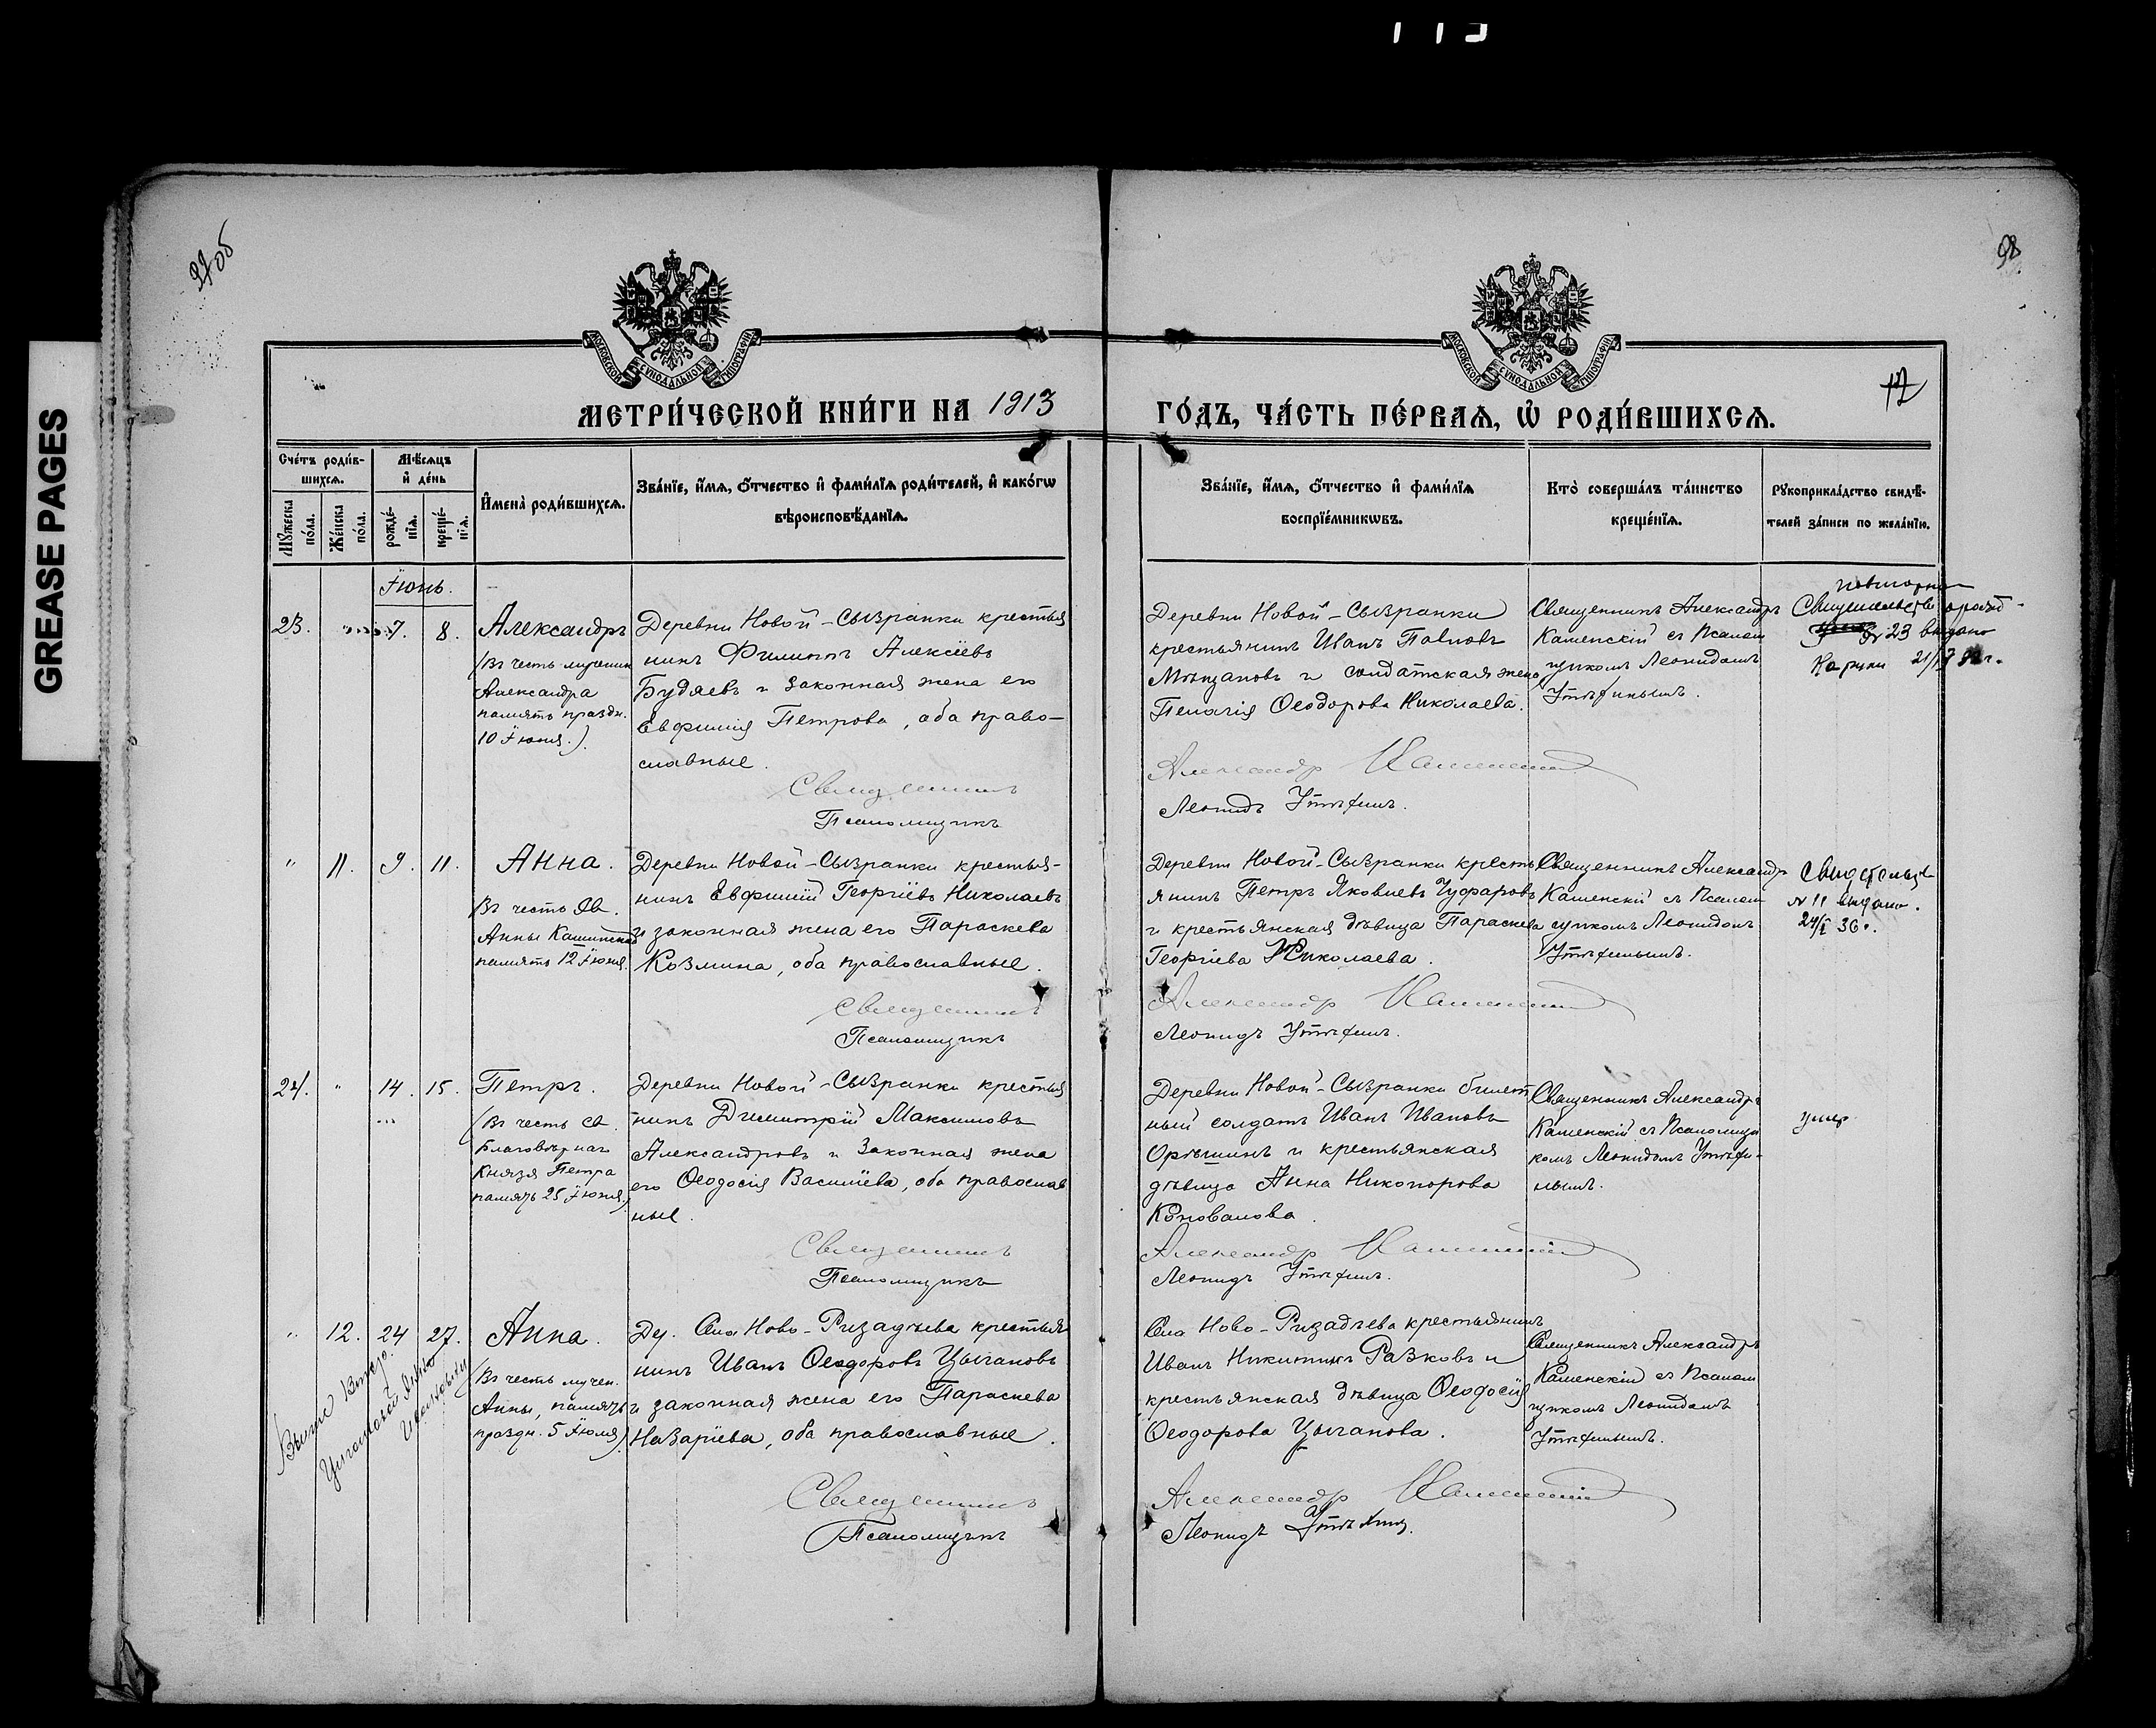 GREASE PAGES
98
МОСКОВСКОЙ СУНОДАЛЬНОЙ ТИПОГРАФІИ
МОСКОВСКОЙ СУНОДАЛЬНОЙ ТИПОГРАФІИ
МЕТРИ́ЧЕСКОЙ КНИ́ГИ НА 1913
ГО́ДЪ, ЧА́СТЬ ПЕ́РВАѦ, Ѡ҆ РОДИ́ВШИХСѦ.
12
Сче́тъ роди́в-
шихсѧ.
Мꙋ́жеска
по́ла.
Же́нска
по́ла.
Мѣ́сѧцъ
и҆ де́нь
рожде́-
нїѧ.
креще́-
нїѧ.
И҆мена̀ роди́вшихсѧ.
Зва́нїе, и҆́мѧ, ѻ҆́тчество и҆ фами́лїѧ роди́телей, и҆ како́гѡ
вѣ̑роисповѣ́данїѧ.
Зва́нїе, и҆́мѧ, ѻ҆́тчество и҆ фами́лїѧ
воспрїе́мникѡвъ.
Кто̀ соверша́лъ та́инство
креще́нїѧ.
Рꙋкоприкла́дство свидѣ́-
телей за́писи по жела́нїю.
Іюнь.
23. " 7. 8.
Александръ
(Въ честь мученик
Александра
память праздн.
10 Іюня.)
Деревни Новой-Сызранки крестья
нинъ Филиппъ Алексіевъ
Будяевъ и законная жена его
Евфимія Петрова, оба право-
славные.
Священникъ
Псаломщикъ
Деревни Новой-Сызранки
крестьянинъ Иванъ Павловъ
и солдатская жена
Пелагія Ѳеодорова Николаева.
Александр Каменскій
Леонидъ Утѣхинъ.
Священникъ Александръ
Каменскій съ Псалом
щикомъ Леонидомъ
Утѣхинымъ.
повторно
№ 23 выдано
" 11. 9. 11.
Анна.
Въ честь Св.
Анны Кашинской
память 12 Іюня.
Деревни Новой-Сызранки крестья-
нинъ Евфимій Георгіевъ Николаевъ
и законная жена его Параскева
Козмина, оба православные.
Священникъ
Псаломщикъ
Деревни Новой-Сызранки кресть
янинъ Петръ Яковлевъ Чуфаровъ
и крестьянская дѣвица Параскева
Георгіева Николаева.
Александр Каменскій
Леонидъ Утѣхинъ.
Священникъ Александр
Каменскій съ Псалом
щикомъ Леонидом
Утѣхинымъ.
№ 11 выдано.
24/I 36 г.
24. " 14. 15.
Петръ.
(Въ честь св.
Благовѣрнаг
Князя Петра
память 25 Іюня)
Деревни Новой-Сызранки крестья
нинъ Димитрій Максимовъ
Александровъ и законная жена
его Ѳеодосія Васильева, оба православ
ные.
Священникъ
Псаломщикъ
Деревни Новой-Сызранки билет
ный солдатъ Иванъ Ивановъ
Орѣшинъ и крестьянская
дѣвица Анна Никонорова
Коновалова.
Александр Каменскій
Леонидъ Утѣхинъ.
Священникъ Александръ
Каменскій съ Псаломщи
комъ Леонидомъ Утѣхи-
нымъ.
умер
" 12. 24 27.
Анна.
(Въ честь мучен.
Анны, память
праздн. 5 Іюля)
Села Ново-Ризадѣева крестья
нинъ Иванъ Ѳеодоровъ Цыгановъ
и законная жена его Параскева
Назаріева, оба православные.
Священникъ
Псаломщикъ
Села Ново-Ризадѣева крестьянинъ
Иванъ Никитинъ Разковъ и
крестьянская дѣвица Ѳеодосія
Ѳеодорова Цыганова.
Александр Каменскій
Леонидъ Утѣхинъ.
Священникъ Александръ
Каменскій съ Псалом
щикомъ Леонидомъ
Утѣхинымъ.